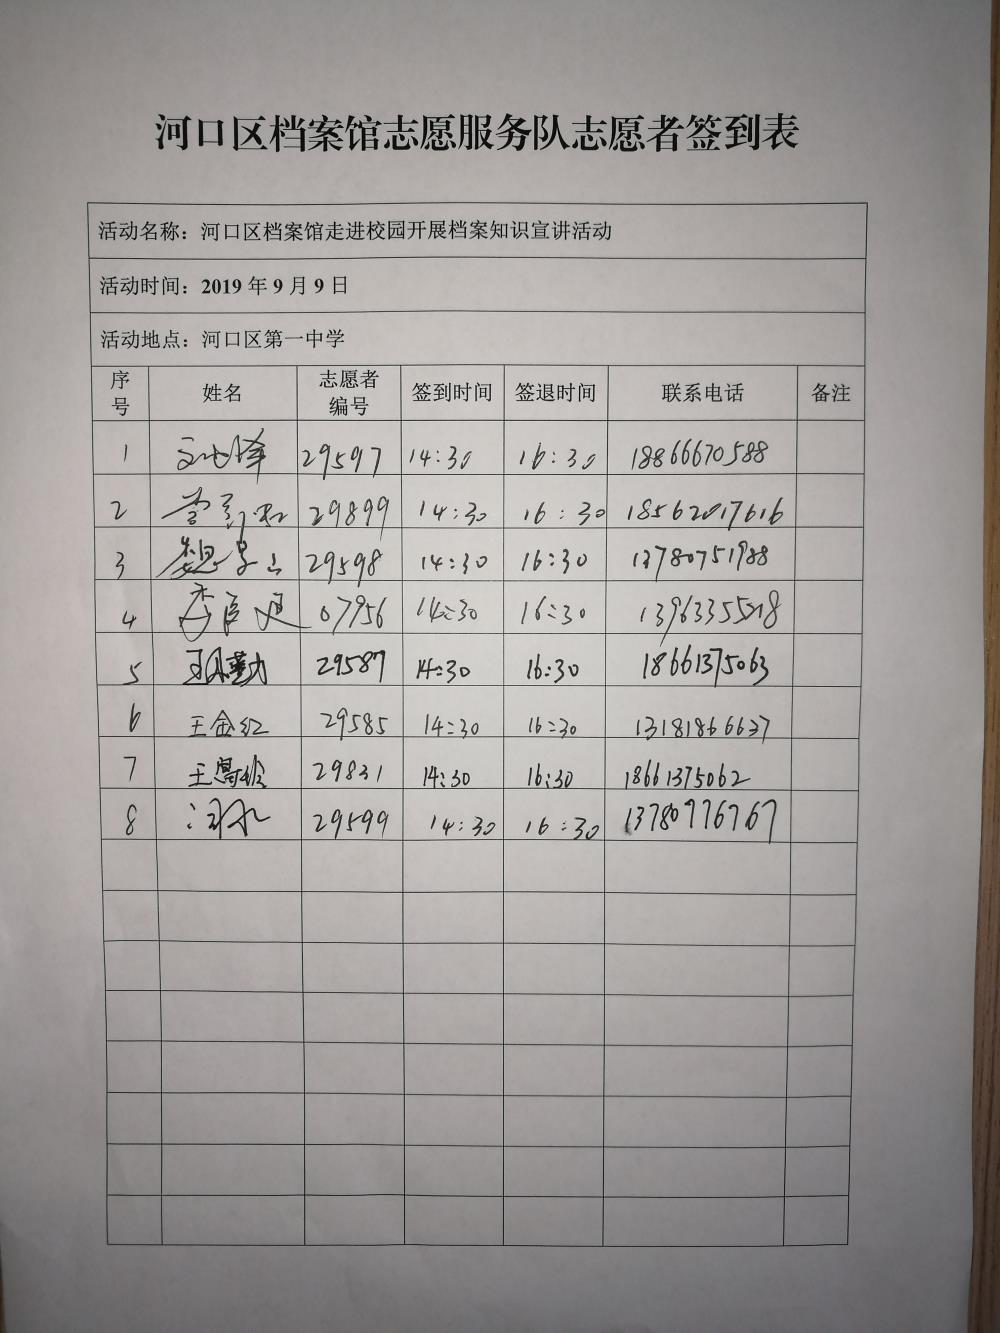 河口区档案馆志愿服务队志愿者签到表
活动名称：河口区档案馆走进校园开展档案知识宣讲活动
活动时间：2019 年 9 月 9 日
活动地点：河口区第一中学
序号 姓名 志愿者编号 签到时间 签退时间 联系电话 备注
1 29597 14:30 16:30 18866670588
2 29899 14:30 16:30 18562017616
3 29598 14:30 16:30 13780751988
4 07956 14:30 16:30
5 29587 14:30 16:30 18661375063
6 王金红 29585 14:30 16:30 13181866637
7 29831 14:30 16:30 18661375062
8 29599 14:30 16:30 13780776767